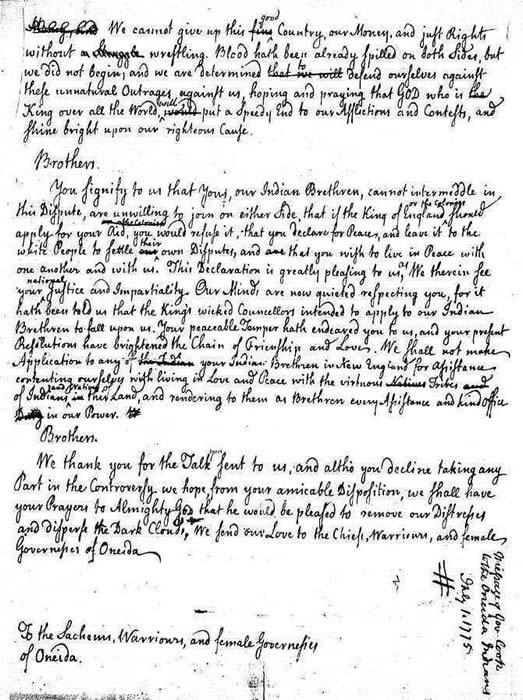 We cannot give up this fine good Country, our Money, and just Rights
without a Struggle wrestling. Blood hath been already spilled on both Sides, but
we did not begin; and we are determined that we will to defend ourselves against
these unnatural Outrages against us, hoping and praying that GOD who is the
King over all the World, would will put a Speedy End to our Afflictions and Contests, and
shine bright upon our righteous Cause.
Brothers.
You signify to us that You, our Indian Brethren, cannot intermeddle in
this Dispute, are unwilling to join on either Side, that if the King of England or the Colonies should
apply for your Aid, you would refuse it, that you declare for Peace, and leave it to the
white People to settle their own Disputes, and that you wish to live in Peace with
one another and with us. This Declaration is greatly pleasing to us, We therein see
your national Justice and Impartiality. Our Minds are now quieted respecting you, for it
hath been told us that the Kings wicked Councellors intended to apply to our Indian
Brethren to fall upon us. Your peaceable Temper hath endeared you to us, and your present
Resolutions have brightened the Chain of Frienship and Love. We shall not make
Application to any of the Indian your Indian Brethren in New England for Assistance
contenting ourselves with living in Love and Peace with the virtuous Natives Tribes and
of Indians in this Land, and rendering to them as Brethren every Assistance and kind Office
in our Power.
Brothers.
We thank you for the Talk sent to us, and altho you decline taking any
Part in the Controversy we hope from your amicable Disposition, we shall have
your Prayers to Almighty God that he would be pleased to remove our Distresses
and disperse the Dark Clouds, We send our Love to the Chiefs, Warriours, and female
Governesses of Oneida
To the Sachems, Warriours, and female Governesses
of Oneida.
Message of Gov Cooke
to the Oneida Indians
July 1. 1775